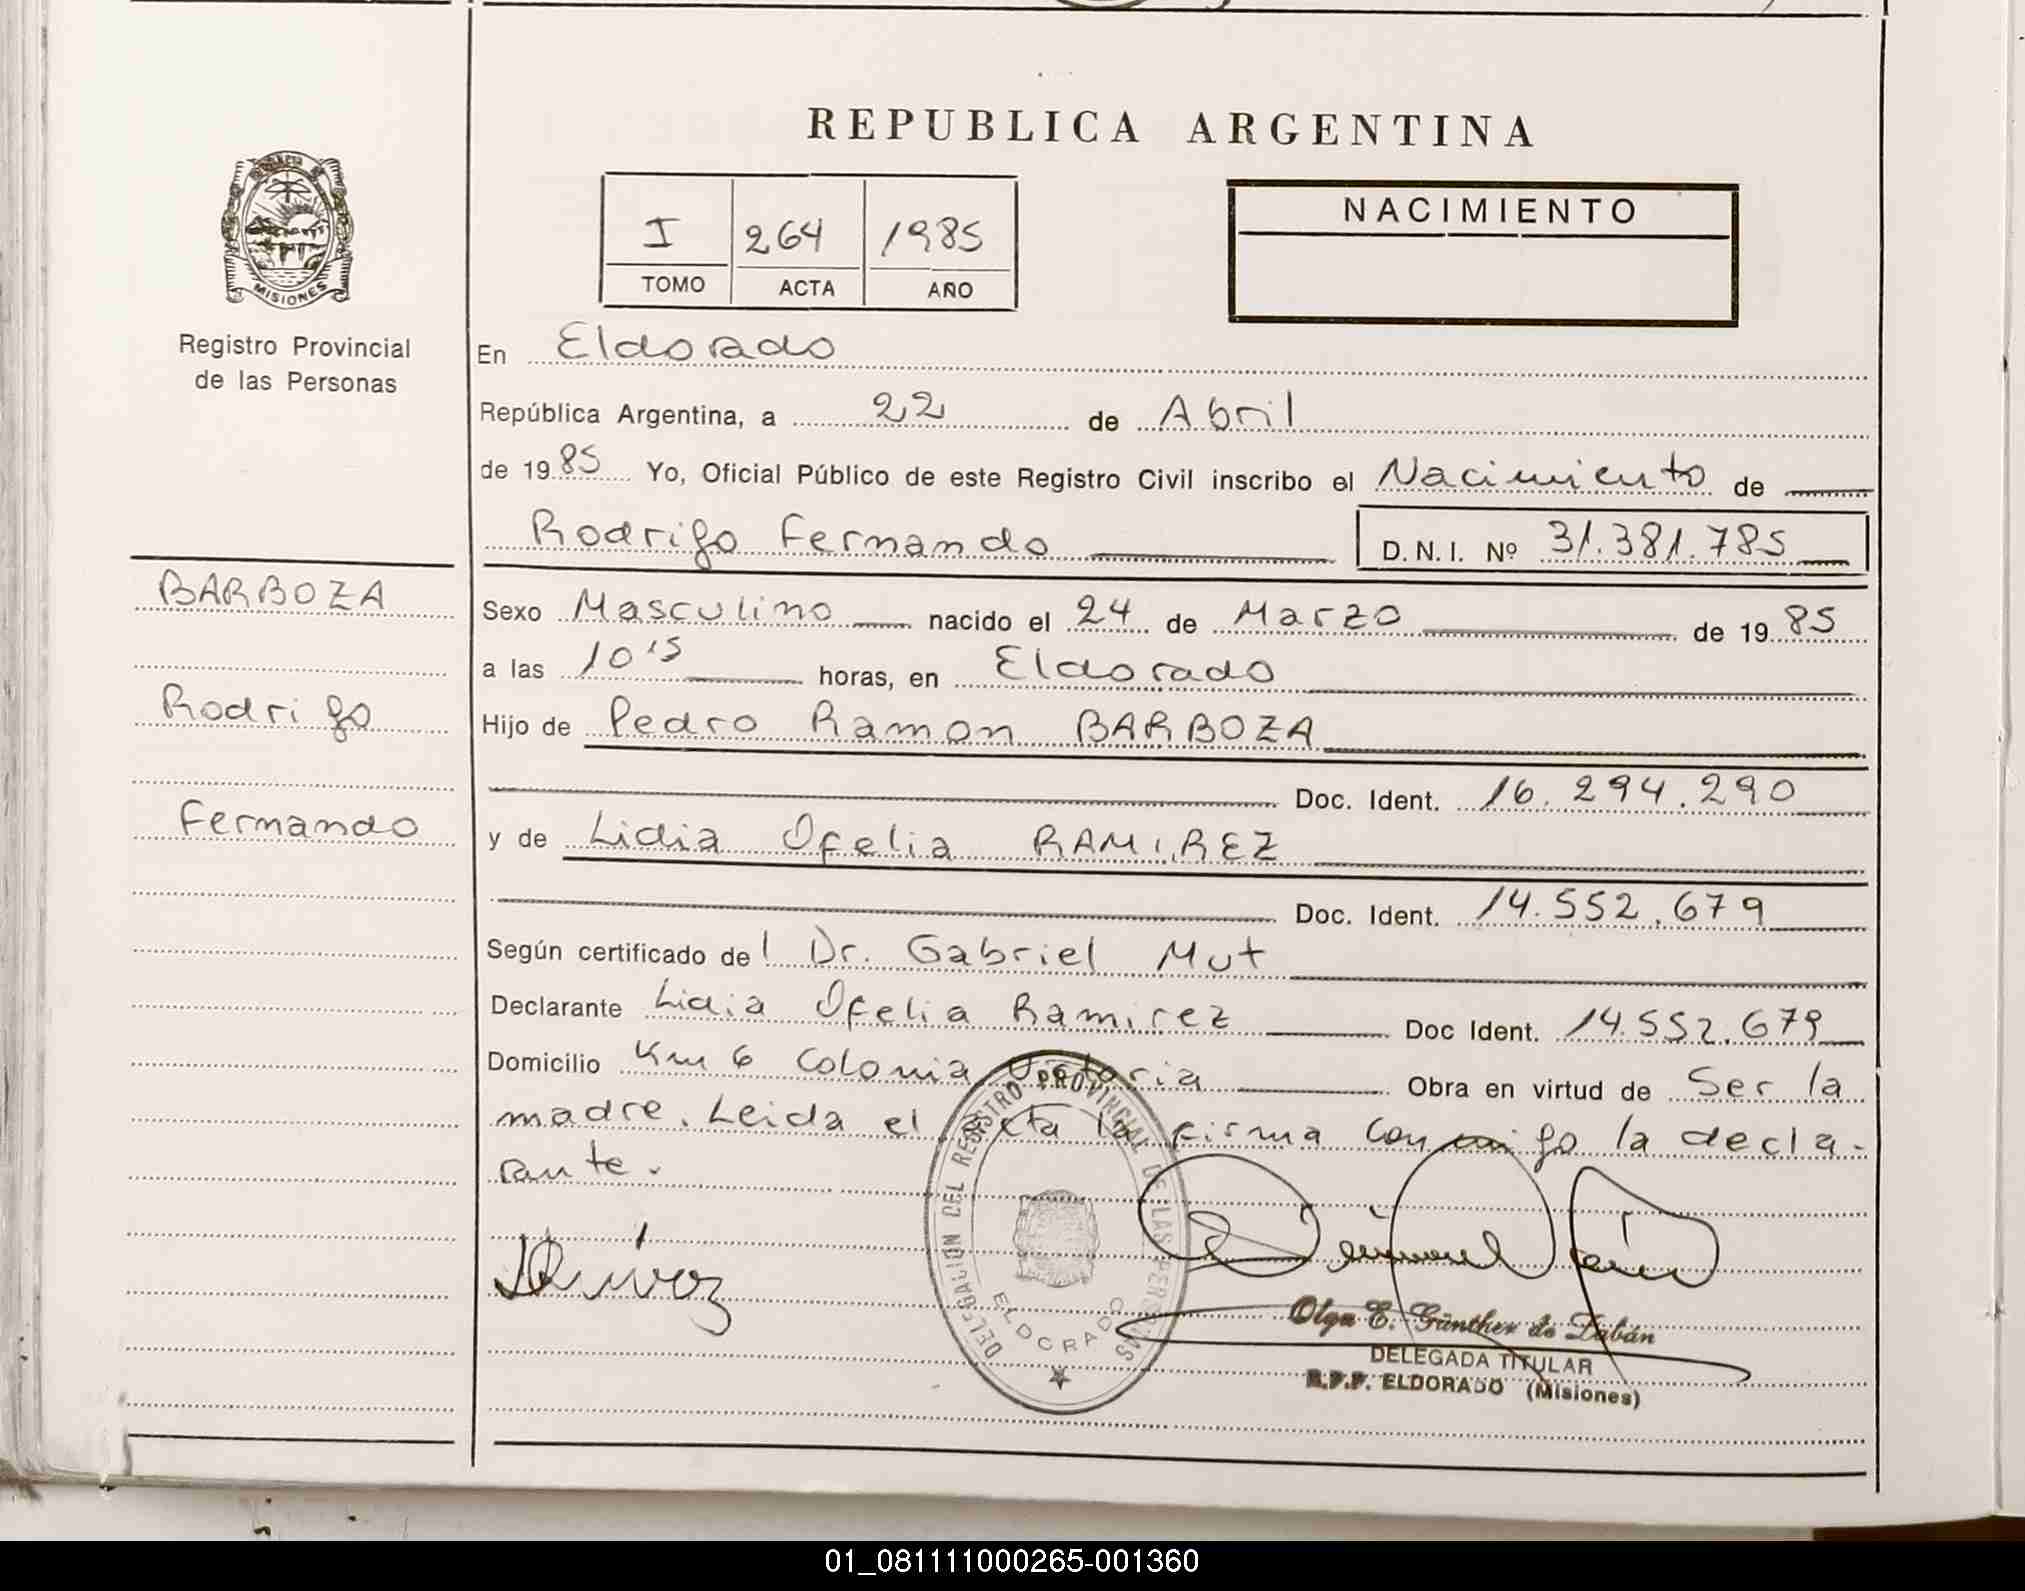 REPUBLICA ARGENTINA
I 264 1985
TOMO ACTA AÑO
NACIMIENTO
MISIONES
Registro Provincial
de las Personas
BARBOZA
Rodrigo
Fernando
En Eldorado
República Argentina, a 22 de Abril
de 1985 Yo, Oficial Público de este Registro Civil inscribo el Nacimiento de
Rodrigo Fernando D.N.I. Nº 31.381.785
Sexo Masculino nacido el 24 de Marzo de 1985
a las 10'15 horas, en Eldorado
Hijo de Pedro Ramon BARBOZA
Doc. Ident. 16.294.290
y de Lidia Ofelia RAMIREZ
Doc. Ident. 14.552.679
Según certificado del Dr. Gabriel Mut
Declarante Lidia Ofelia Ramirez Doc Ident. 14.552.679
Domicilio Km 6 Colonia Victoria Obra en virtud de Ser la
madre. Leida el acta la firma conmigo la decla-
rante.
DELEGACION DEL REGISTRO PROVINCIAL DE LAS PERSONAS
ELDORADO
Olga E. Günther de Dabán
DELEGADA TITULAR
R.P.P. ELDORADO (Misiones)
01_081111000265-001360